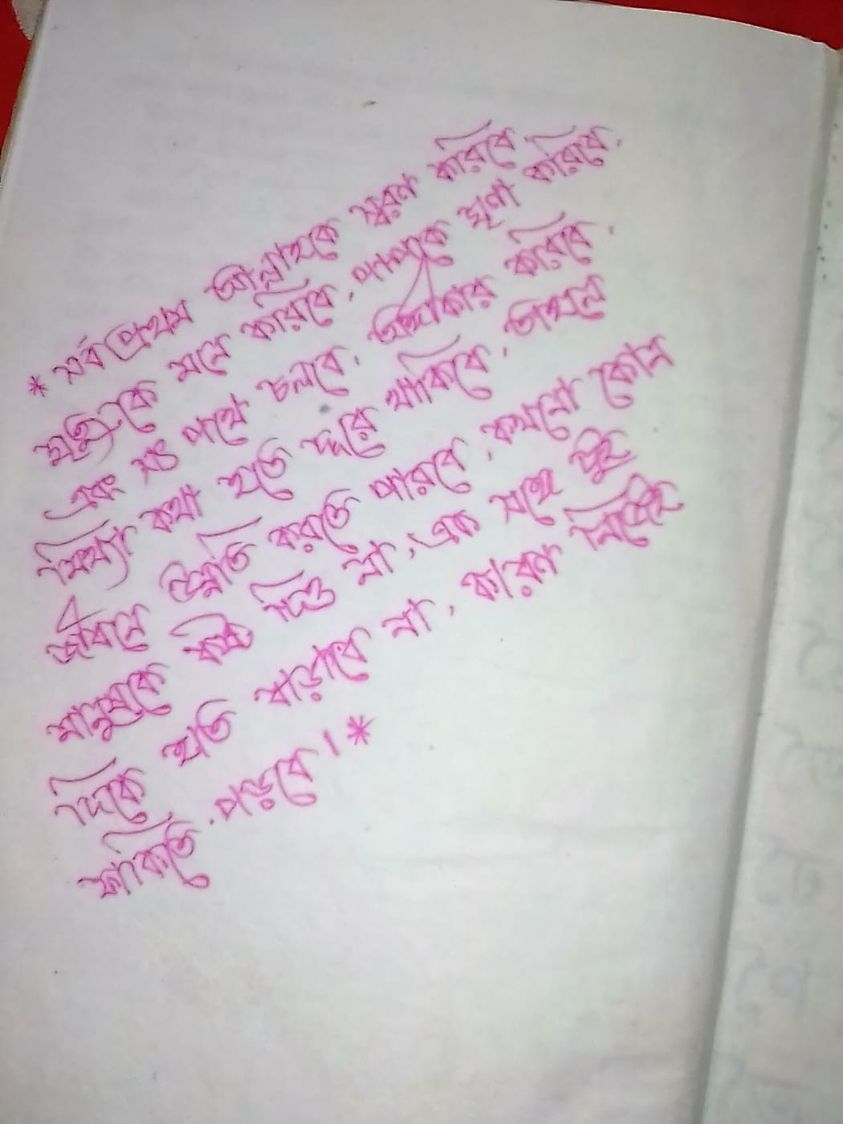 * সর্ব প্রথম আল্লাহকে স্বরণ করিবে
মৃত্যুকে মনে করিবে, পাপকে ঘৃণা করিবে,
এবং সৎ পথে চলবে, অহংকার করিবে,
মিথ্যা কথা হতে দূরে থাকিবে, তাহলে
জীবনে উন্নতি করতে পারবে, কখনো কোন
মানুষকে কষ্ট দিও না, এক সঙ্গে দুই
দিকে হাত বাড়াবে না, কারণ নিজেই
ফাকিতে পড়বে।*